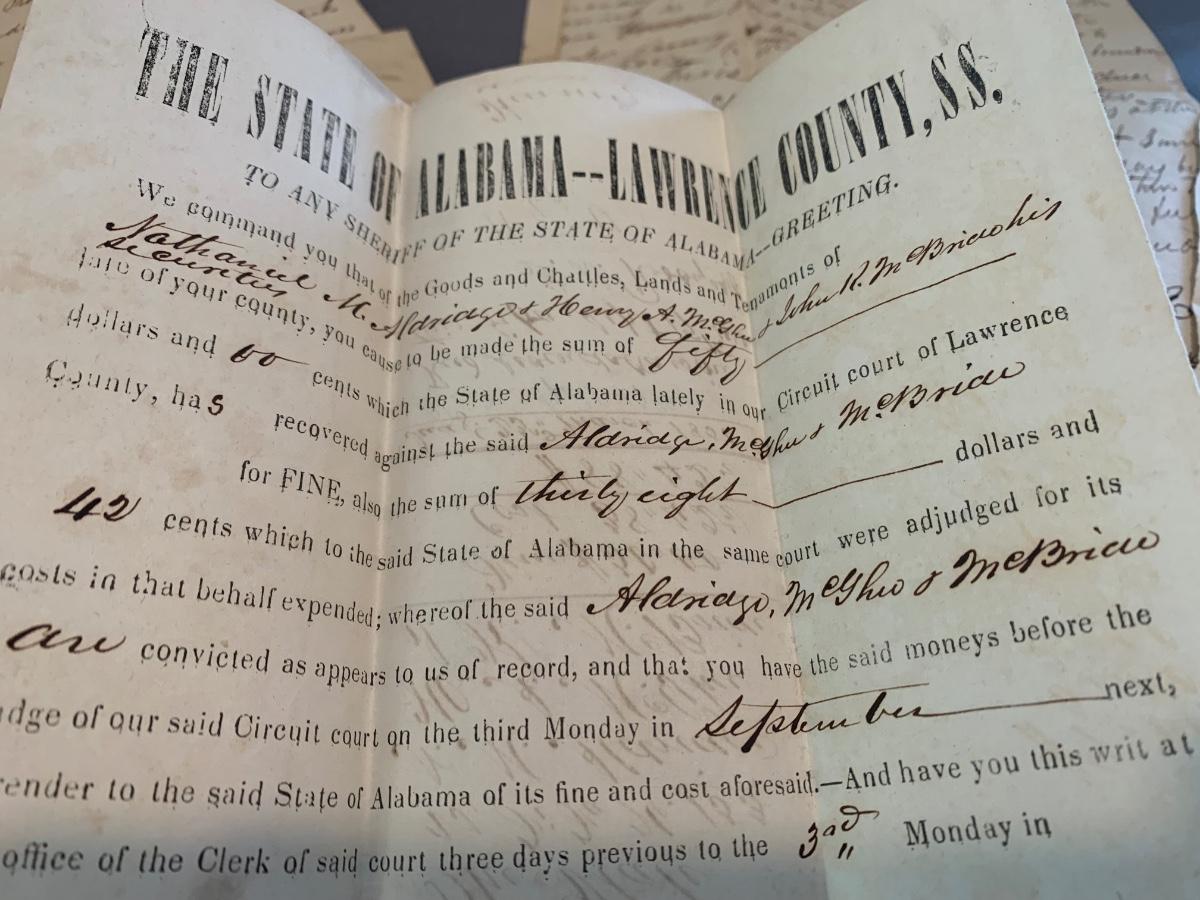 THE STATE OF ALABAMA--LAWRENCE COUNTY, SS.
TO ANY SHERIFF OF THE STATE OF ALABAMA--GREETING.
We command you that of the Goods and Chattles, Lands and Tenaments of
Nathaniel M. Aldridge & Henry A. McGhee & John R. McBride his
securities
late of your county, you cause to be made the sum of fifty
dollars and 00 cents which the State of Alabama lately in our Circuit court of Lawrence
County, has recovered against the said Aldridge, McGhee & McBride
for FINE, also the sum of thirty eight dollars and
42 cents which to the said State of Alabama in the same court were adjudged for its
costs in that behalf expended; whereof the said Aldridge, McGhee & McBride
are convicted as appears to us of record, and that you have the said moneys before the
udge of our said Circuit court on the third Monday in September next,
render to the said State of Alabama of its fine and cost aforesaid.—And have you this writ at
office of the Clerk of said court three days previous to the 3rd Monday in